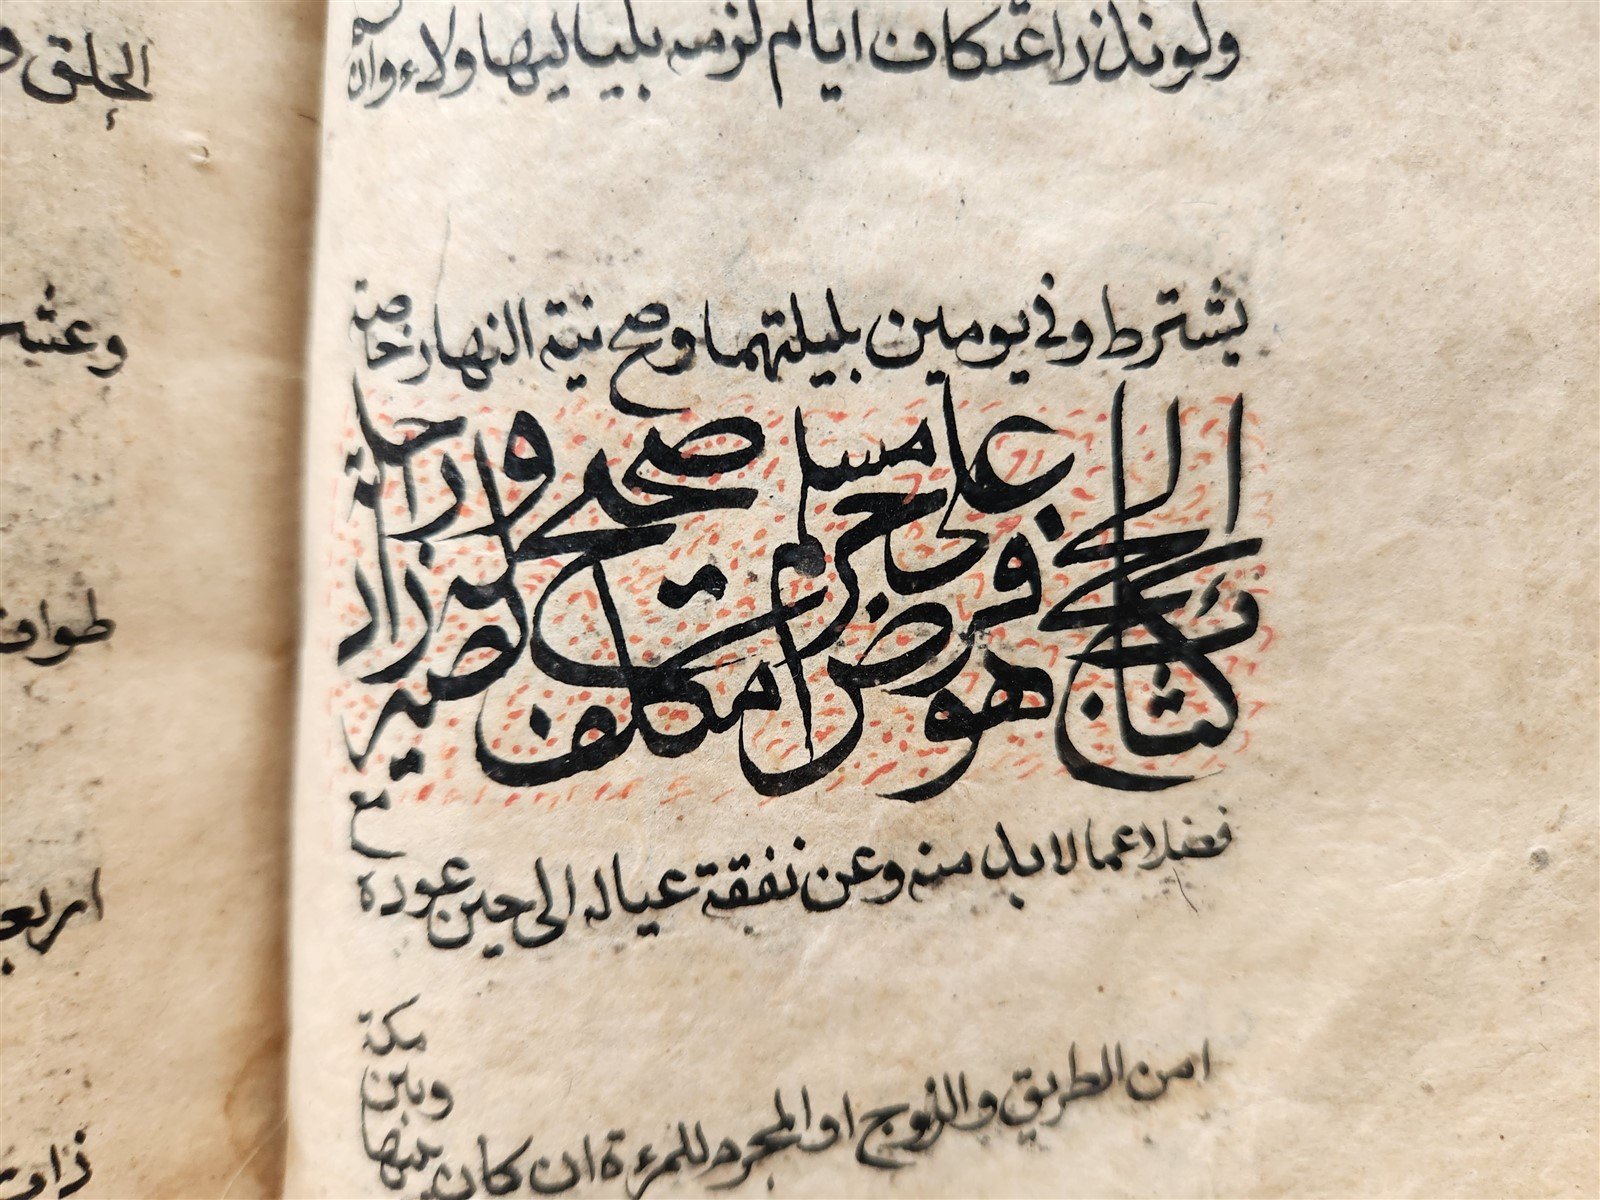 ولو نذر اعتكاف ايام لزمه بلياليها ولاء وان لم
يشترط وفي يومين بليلتهما وصح نية النهار خاصة
كتاب الحج هو فرض على حر مسلم مكلف صحيح بصير له زاد وراحلة
فضلا عما لا بد منه وعن نفقة عياله الى حين عوده مع
امن الطريق والزوج او المحرم للمرءة ان كان بينها وبين مكة
الحلق
طواف